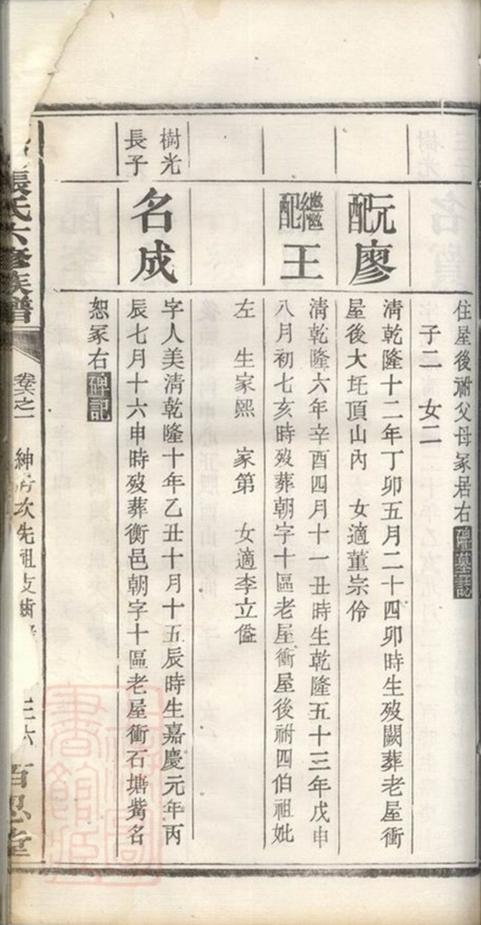 住屋後祔父母冢居右碑墓記
子二　女二
元配廖
清乾隆十二年丁卯五月二十四卯時生歿闕葬老屋衝
屋後大圫頂山內　女適董宗伶
繼配王
清乾隆六年辛酉四月十一丑時生乾隆五十三年戊申
八月初七亥時歿葬朝字十區老屋衝屋後祔四伯祖妣
左　生家熙　家第　女適李立鎰
樹光
長子
名成
字人美清乾隆十年乙丑十月十五辰時生嘉慶元年丙
辰七月十六申時歿葬衡邑朝字十區老屋衝石塘觜名
恕冢右碑記
張氏六修族譜
卷六之一
紳房次先祖支
三六
百忍堂